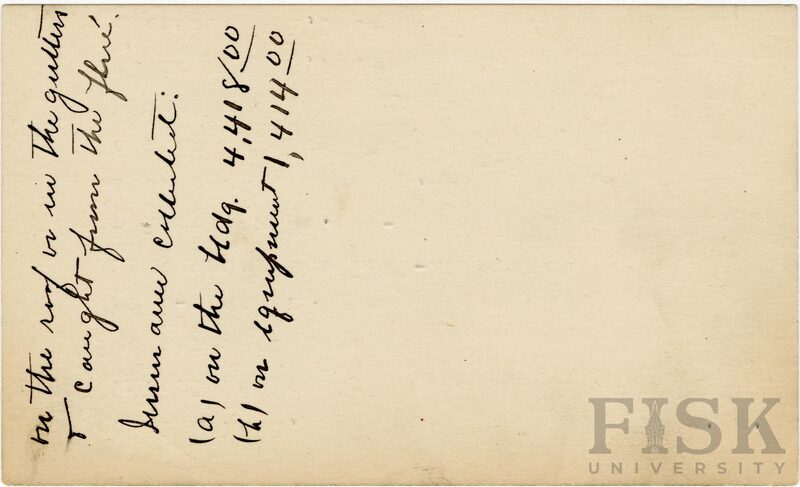 on the roof or in the gutters
& caught from the flue.
Insurance collected:
(a) on the bldg. 4,418 00
(b) on equipment 1,414 00
FISK
UNIVERSITY